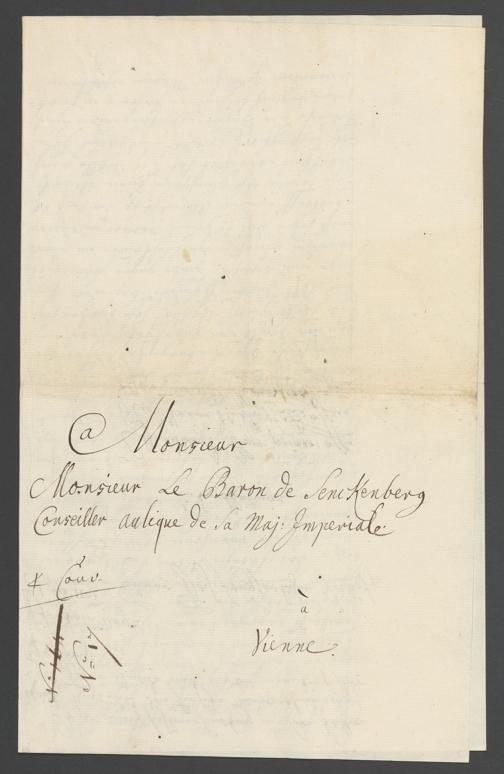 a Monsieur
Monsieur Le Baron de Senckenberg
Conseiller aulique de Sa Maj: Imperiale.
à
Vienne.
Couv.